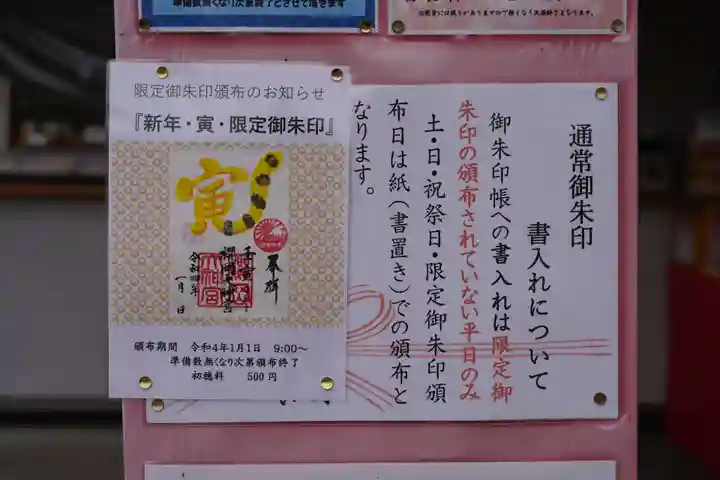 準備数無くなり次第終了とさせて頂きます
限定御朱印頒布のお知らせ
『新年・寅・限定御朱印』
寅
奉拝
壬寅
櫻岡大神宮
令和四年
一月 日
頒布期間 令和4年1月1日 9:00～
準備数無くなり次第頒布終了
初穂料 500円
通常御朱印
書入れについて
御朱印帳への書入れは限定御
朱印の頒布されていない平日のみ
土・日・祝祭日・限定御朱印頒
布日は紙（書置き）での頒布と
なります。